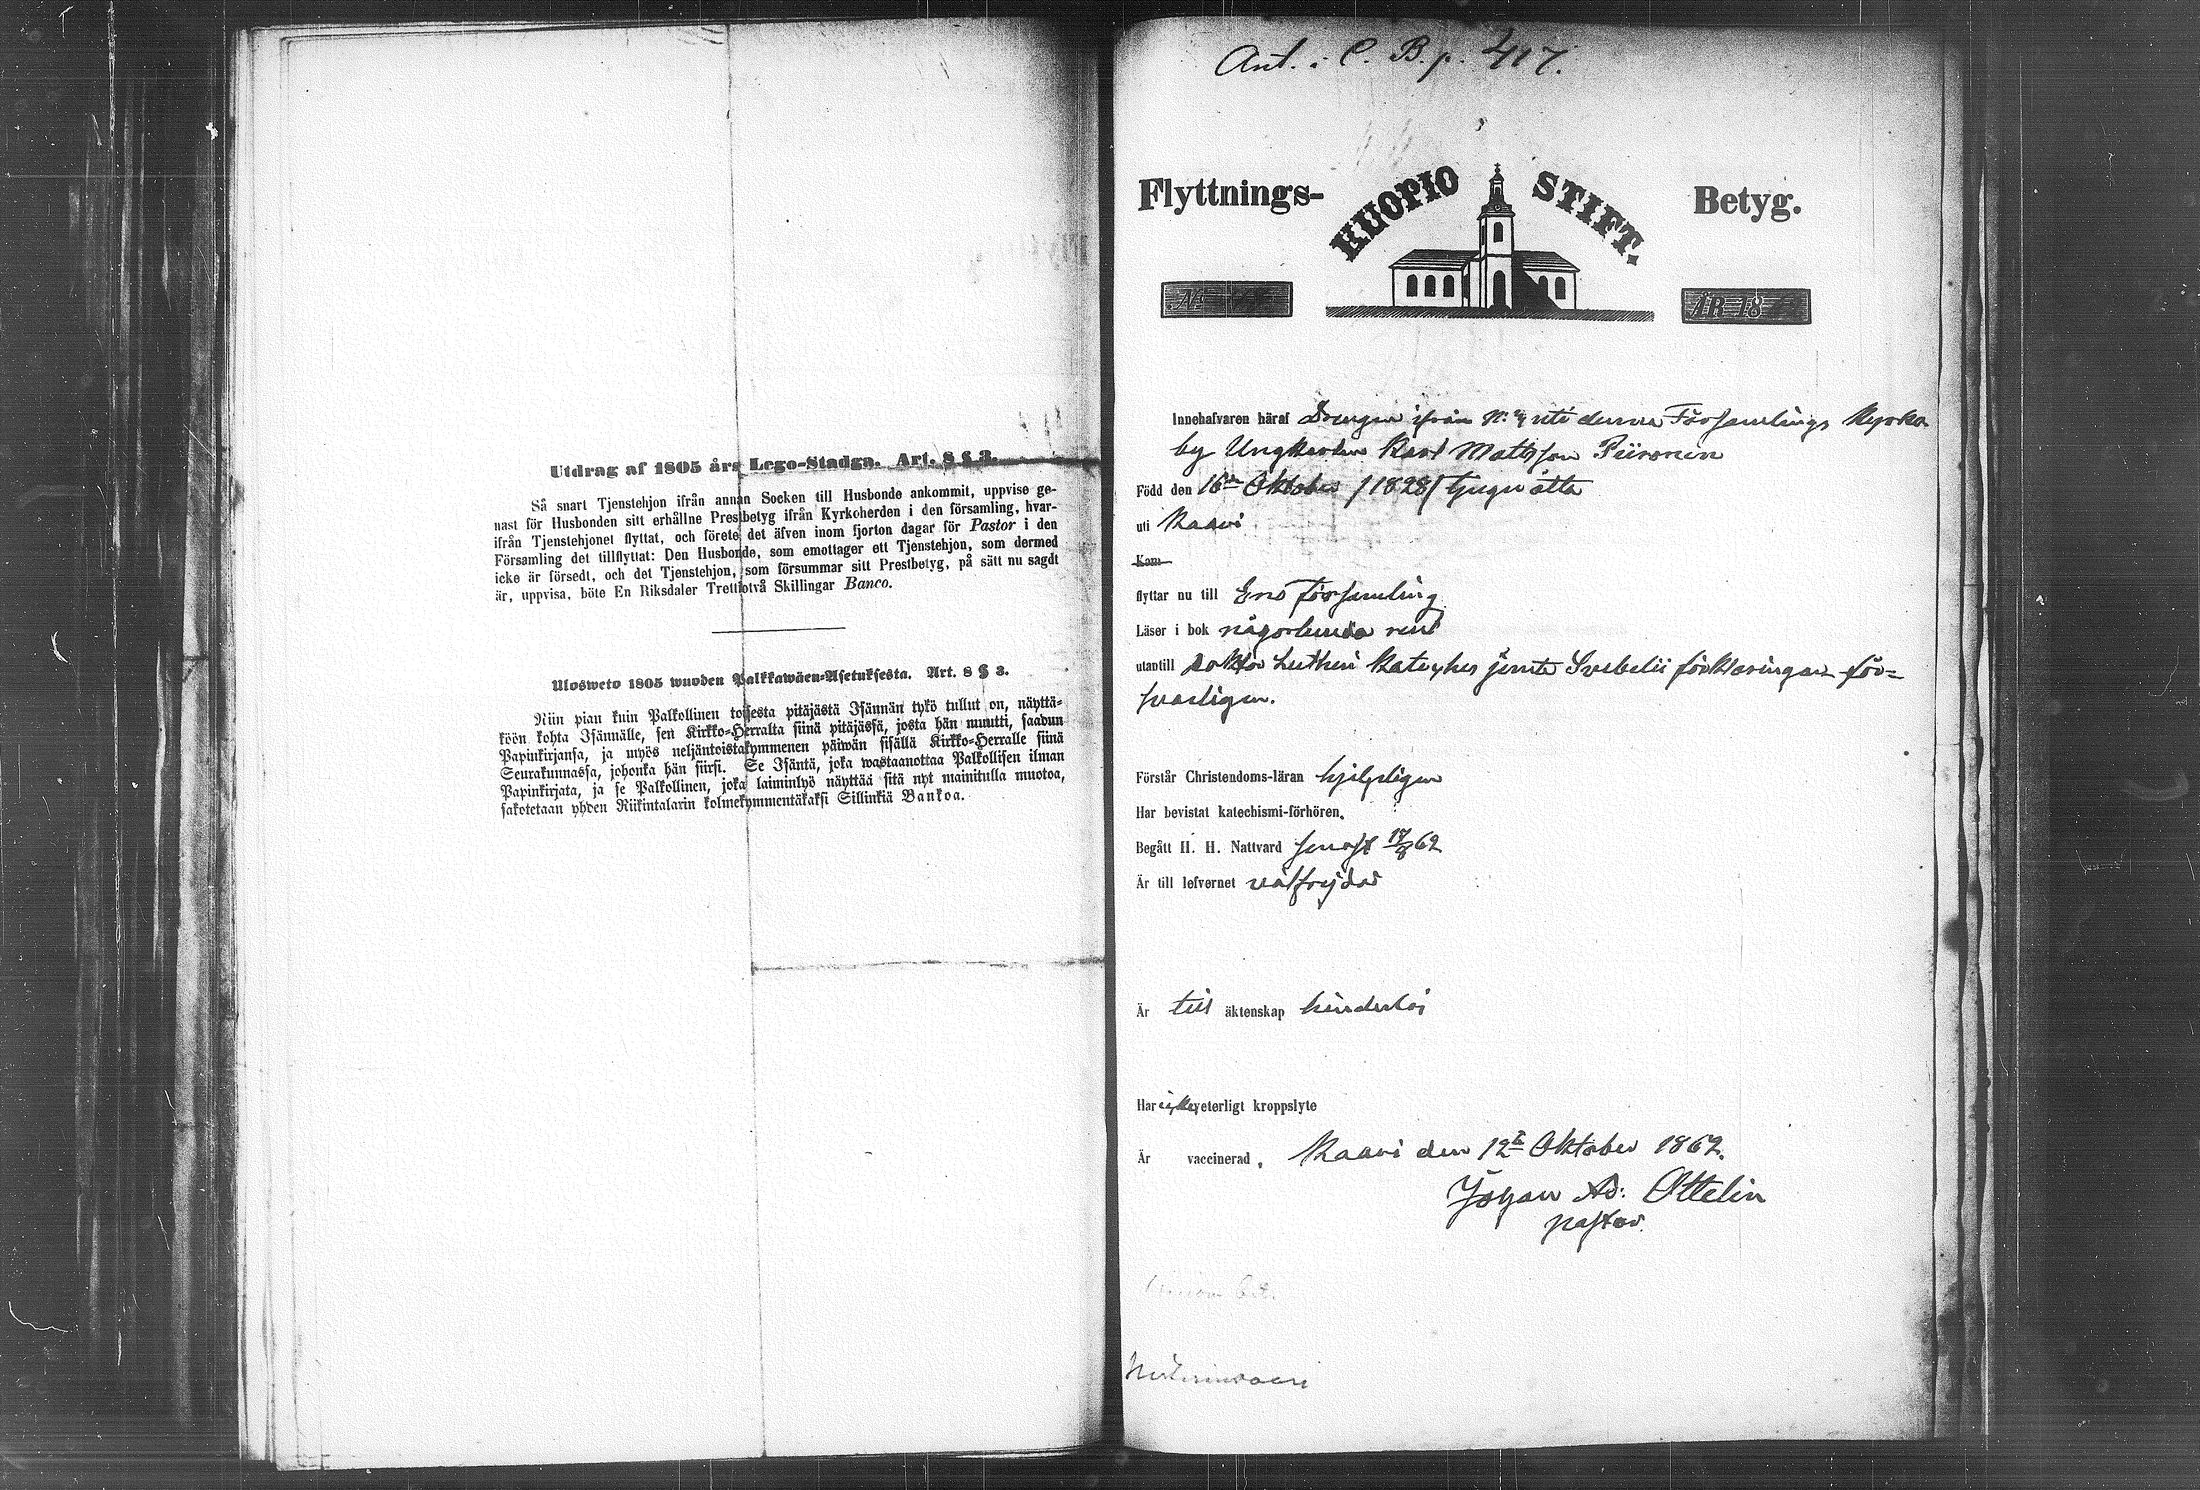 Utdrag af 1805 års Lego-Stadga. Art. 8 § 3.
Så snart Tjenstehjon ifrån annan Socken till Husbonde ankommit, uppvise ge-
nast för Husbonden sitt erhållne Prestbetyg ifrån Kyrkoherden i den församling, hvar-
ifrån Tjenstehjonet flyttat, och förete det äfven inom fjorton dagar för Pastor i den
Församling det tillflyttat: Den Husbonde, som emottager ett Tjenstehjon, som dermed
icke är försedt, och det Tjenstehjon, som försummar sitt Prestbetyg, på sätt nu sagdt
är, uppvisa, böte En Riksdaler Trettiotvå Skillingar Banco.
Ulosweto 1805 wuoden Palkkawäen-Asetuksesta. Art. 8 § 3.
Niin pian kuin Palkollinen toisesta pitäjästä Isännän tykö tullut on, näyttä-
köön kohta Isännälle, sen Kirkko-Herralta siinä pitäjässä, josta hän muutti, saadun
Papinkirjansa, ja myös neljäntoistakymmenen päiwän sisällä Kirkko-Herralle siinä
Seurakunnassa, johonka hän siirsi. Se Isäntä, joka wastaanottaa Palkollisen ilman
Papinkirjata, ja se Palkollinen, joka laiminlyö näyttää sitä nyt mainitulla muotoa,
sakotetaan yhden Riikintalarin kolmekymmentäkaksi Sillinkiä Bankoa.
Ant. i C. B. p. 417.
Flyttnings- KUOPIO STIFT. Betyg.
N:o ÅR 18
Innehafvaren häraf Drengen ifrån N:o 4 uti denna Församlings Kyrko
by Ungkarlen Karl Mattsson Piironen
Född den 16de Oktober /1828/ tjugu åtta
uti Kaavi
Kom
flyttar nu till Eno församling
Läser i bok någorlunda rent
utantill doktor Lutheri Kateches jemte Svebelii förklaringar för-
svarligen.
Förstår Christendoms-läran hjelpligen
Har bevistat katechismi-förhören.
Begått H. H. Nattvard senast 17/8 62
Är till lefvernet välfrejdad
Är till äktenskap hinderlös
Har icke yeterligt kroppslyte
Är vaccinerad. Kaavi den 12te Oktober 1862.
Johan Ad: Ottelin
pastor.